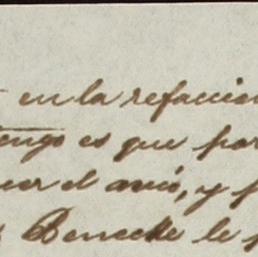 en la refaccion
tengo es que par
el avio, y p
Benecke le